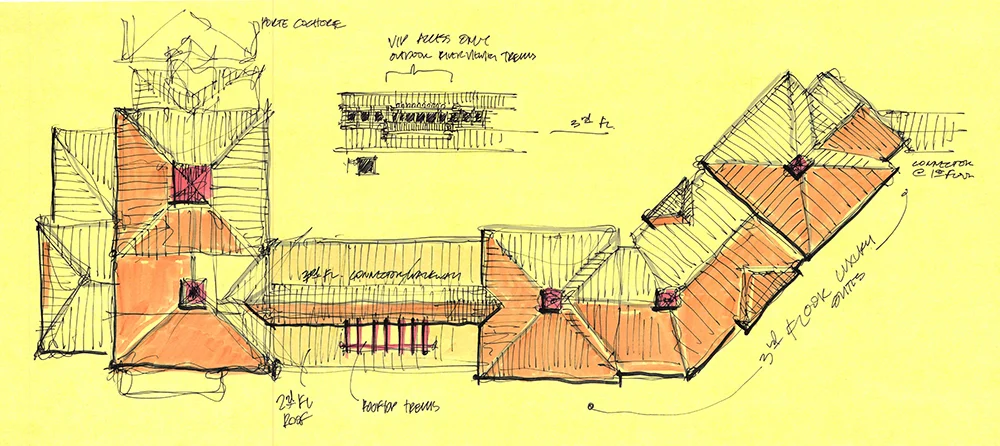 PORTE COCHERE
VIP ACCESS ONLY
OUTDOOR RIVER VIEWING TRELLIS
3rd FL
CONNECTOR
@ 1st FLOOR
3rd FL. CONNECTOR/WALKWAY
3rd FLOOR LUXURY
SUITES
2nd FL
ROOF
ROOFTOP TRELLIS